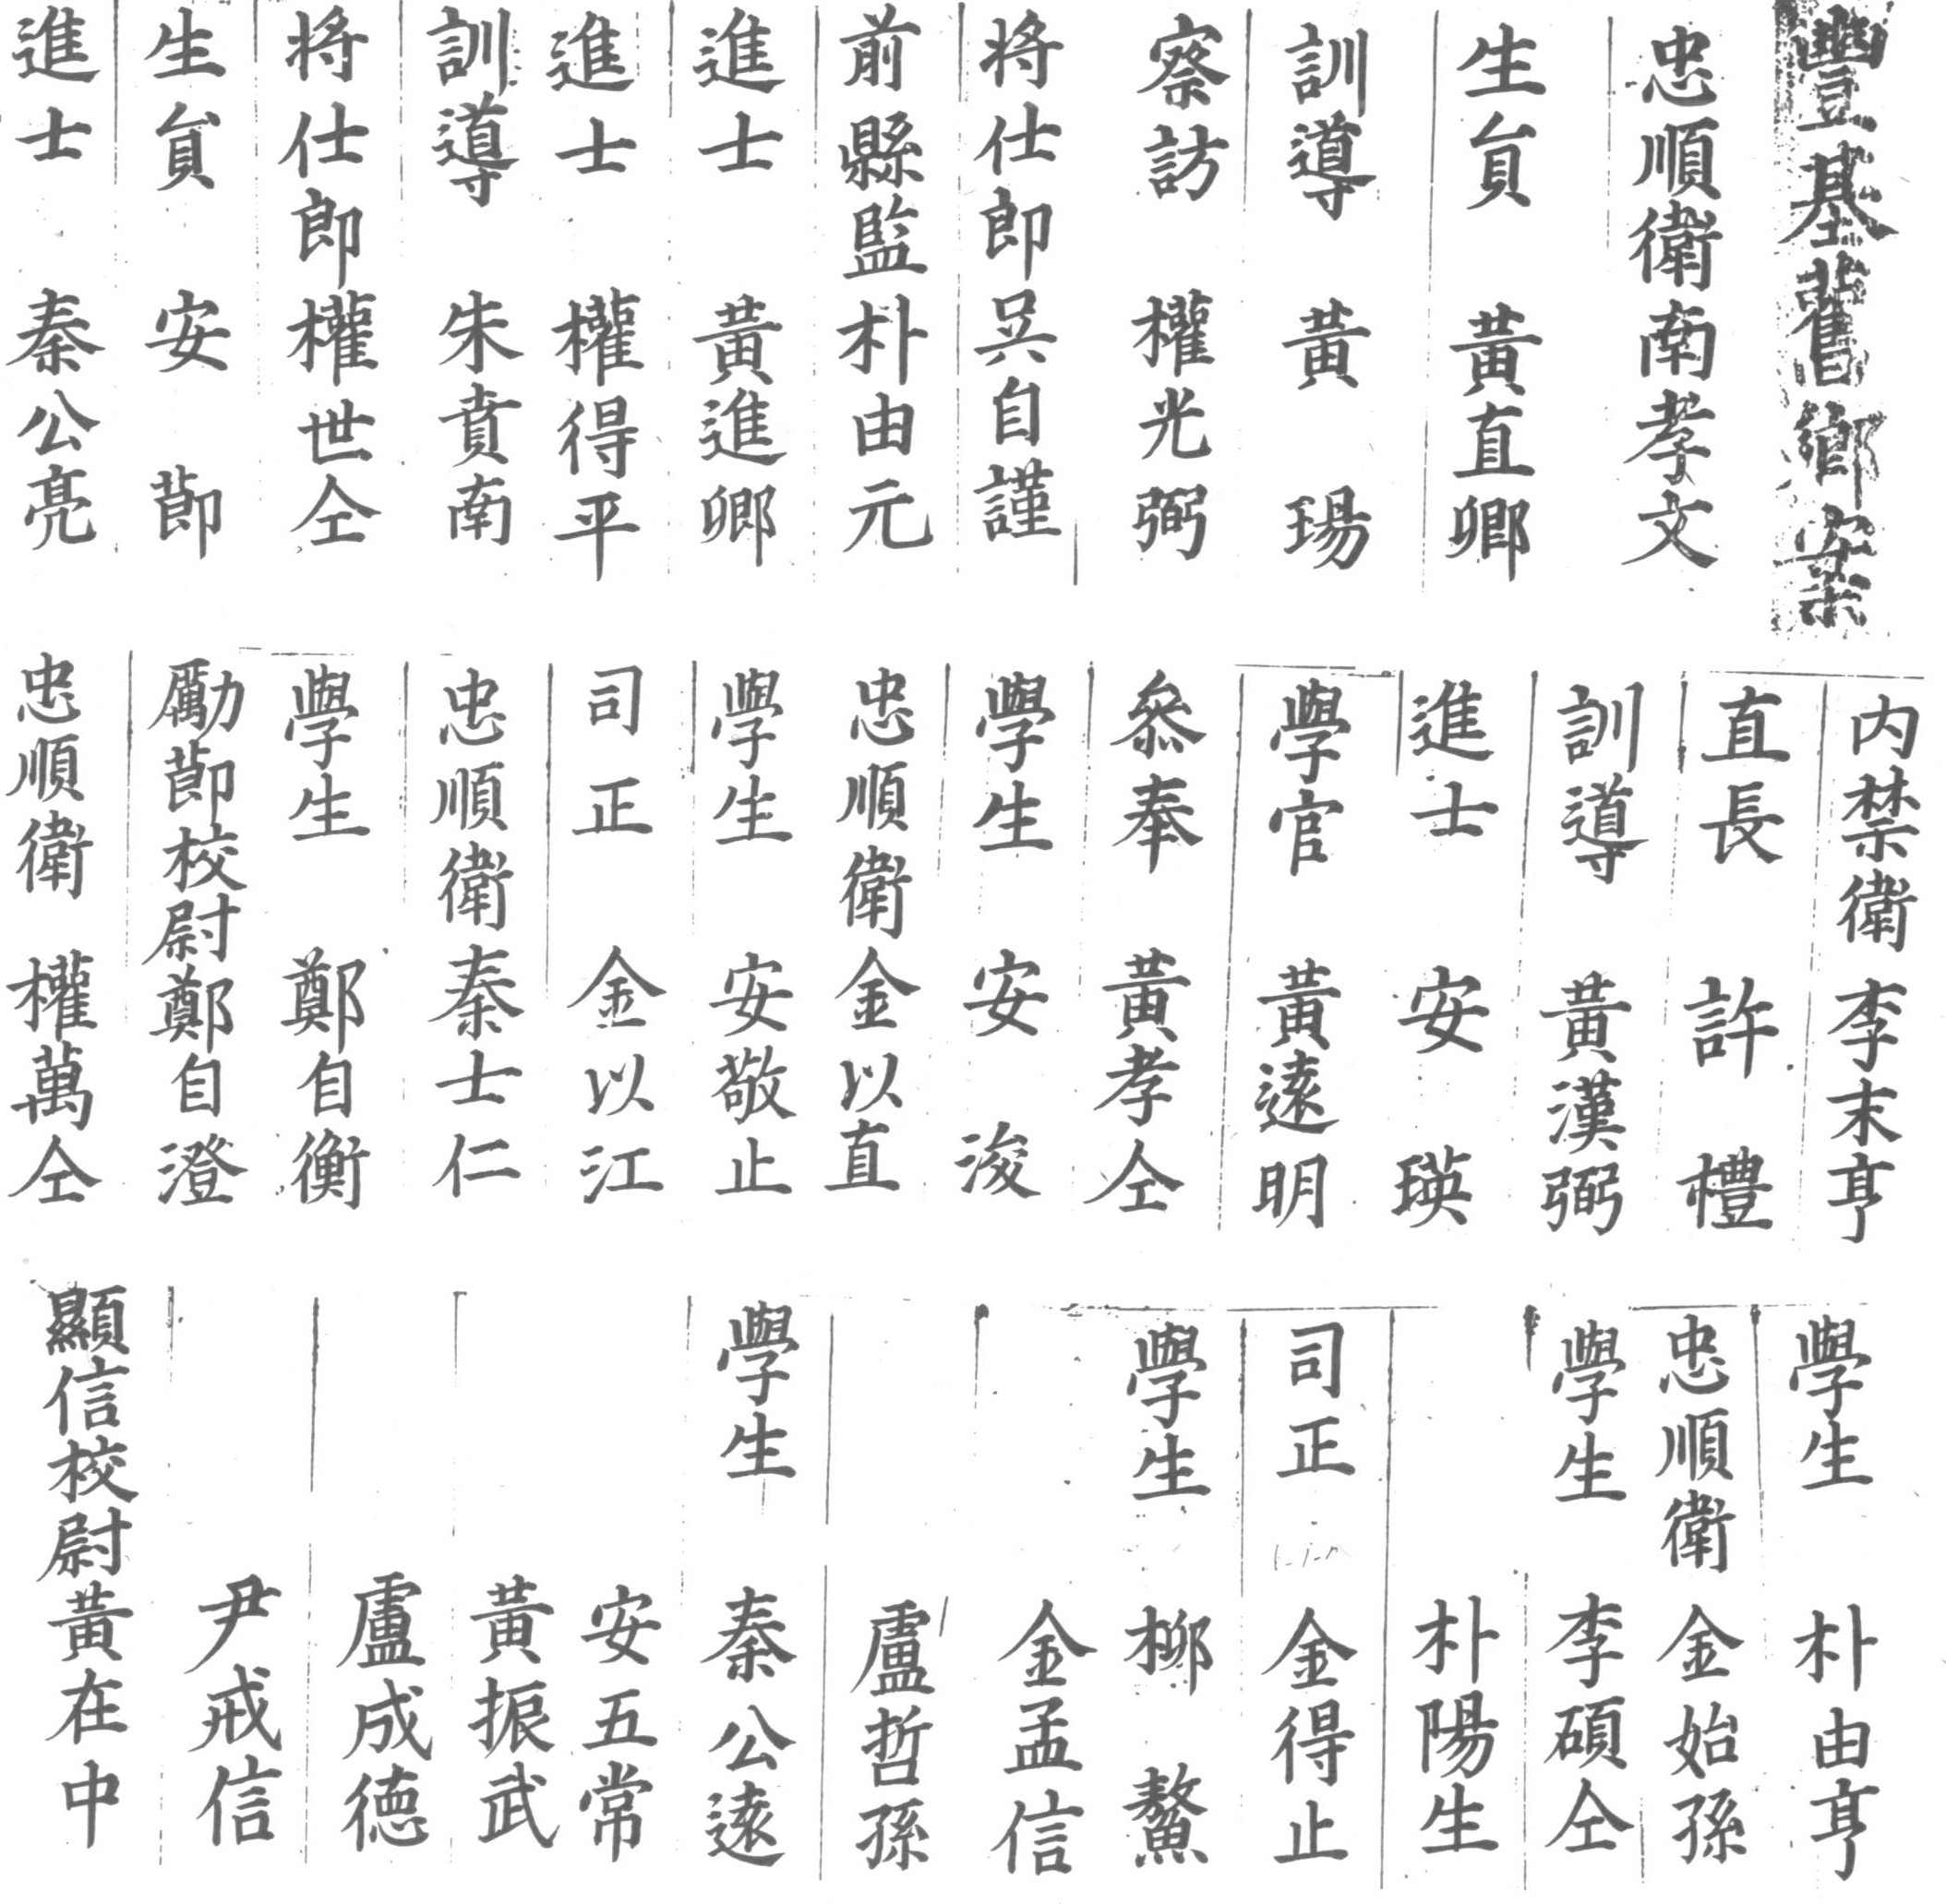 豐基舊鄉案
忠順衛南孝文
生負 黃直卿
訓導 黃瑒
察訪 權光弼
將仕郎吳自謹
前縣監朴由元
進士 黃進卿
進士 權得平
訓導 朱賁南
將仕郎權世仝
生負 安節
進士 秦公亮
内禁衛李末亨
直長 許禮
訓導 黃漢弼
進士 安瑛
學官 黃遠明
叅奉 黃孝仝
學生 安浚
忠順衛金以直
學生 安敬止
司正 金以江
忠順衛秦士仁
學生 鄭自衡
勵節校尉鄭自澄
忠順衛 權萬仝
學生 朴由亨
忠順衛金始孫
學生 李碩仝
朴陽生
司正 金得止
學生 柳鰲
金孟信
盧哲孫
學生 秦公遠
安五常
黃振武
盧成德
尹戒信
顯信校尉黃在中